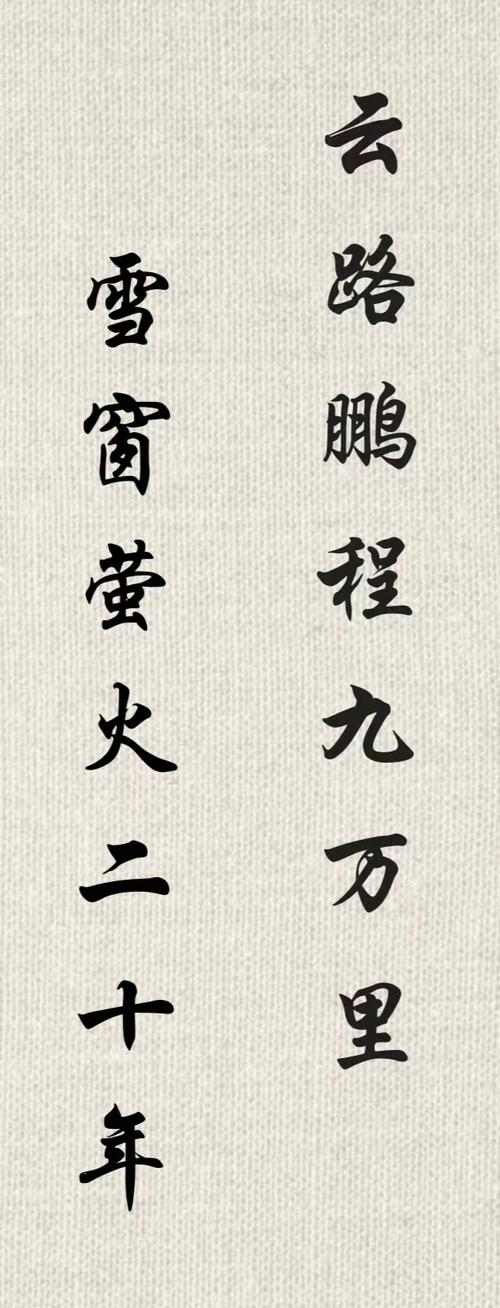 云路鹏程九万里
雪窗萤火二十年